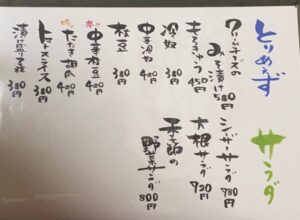 とりあえず
クリームチーズの
みそ漬け 580円
もろきゅう 450円
冷奴 380円
中華冷奴 420円
枝豆 380円
辛!! 中華枝豆 420円
たたき胡瓜 420円
トマトスライス 380円
漬け盛り 380円
サラダ
シーザーサラダ 780円
大根サラダ 720円
季節の
野菜サラダ 800円